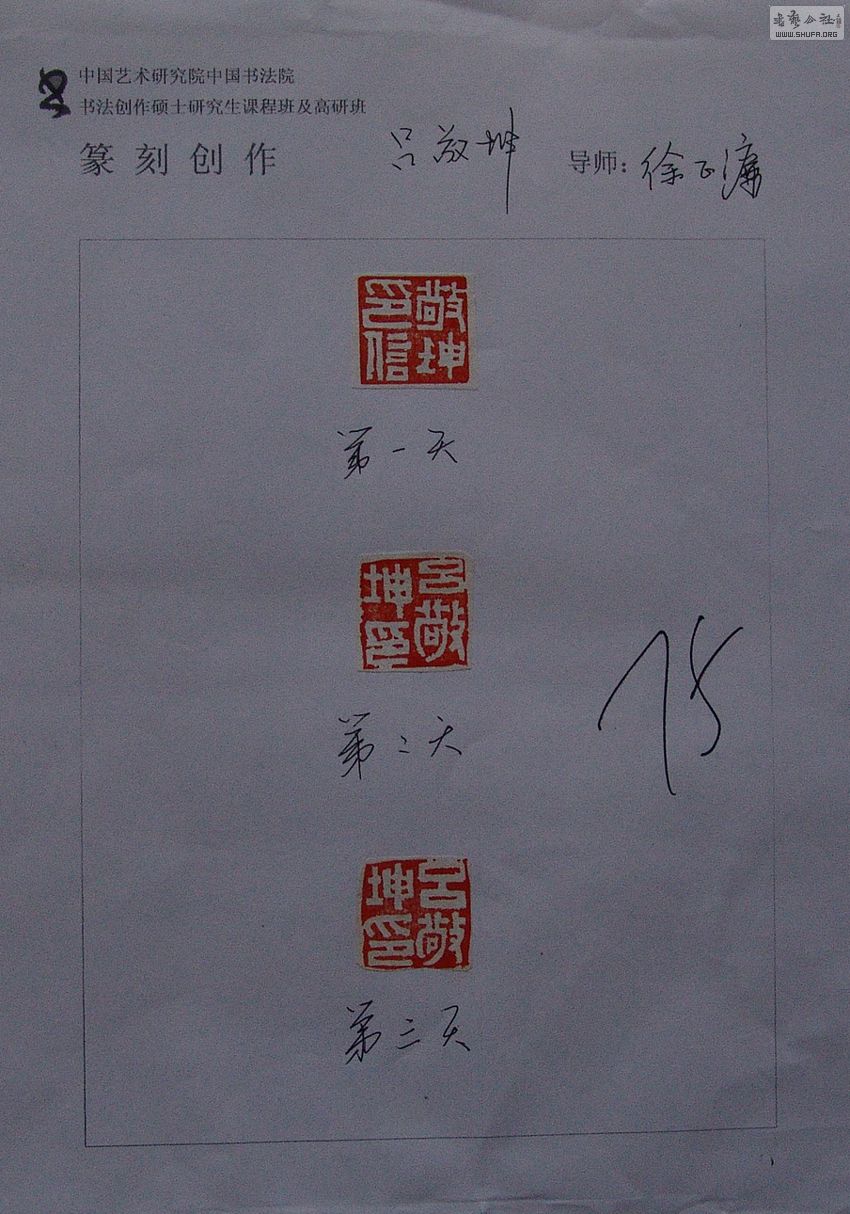 书艺公社
WWW.SHUFA.ORG
中国艺术研究院中国书法院
书法创作硕士研究生课程班及高研班
篆刻创作 吕敬坤 导师：徐正濂
敬坤印信
第一天
吕敬坤印
第二天
吕敬坤印
第三天